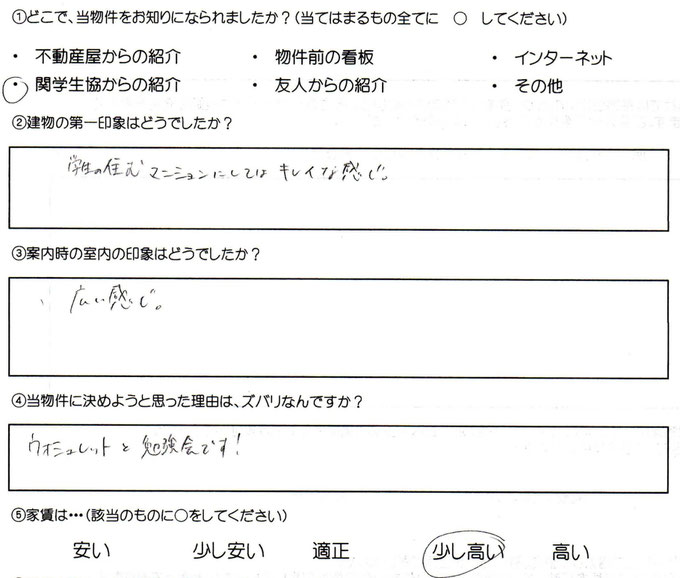 ①どこで、当物件をお知りになられましたか？(当てはまるもの全てに ○ してください)
・ 不動産屋からの紹介 ・ 物件前の看板 ・ インターネット
・ 関学生協からの紹介 ・ 友人からの紹介 ・ その他
②建物の第一印象はどうでしたか？
学生の住むマンションにしてはキレイな感じ。
③案内時の室内の印象はどうでしたか？
広い感じ。
④当物件に決めようと思った理由は、ズバリなんですか？
ウォシュレットと勉強会です!
⑤家賃は…(該当のものに○をしてください)
安い 少し安い 適正 少し高い 高い